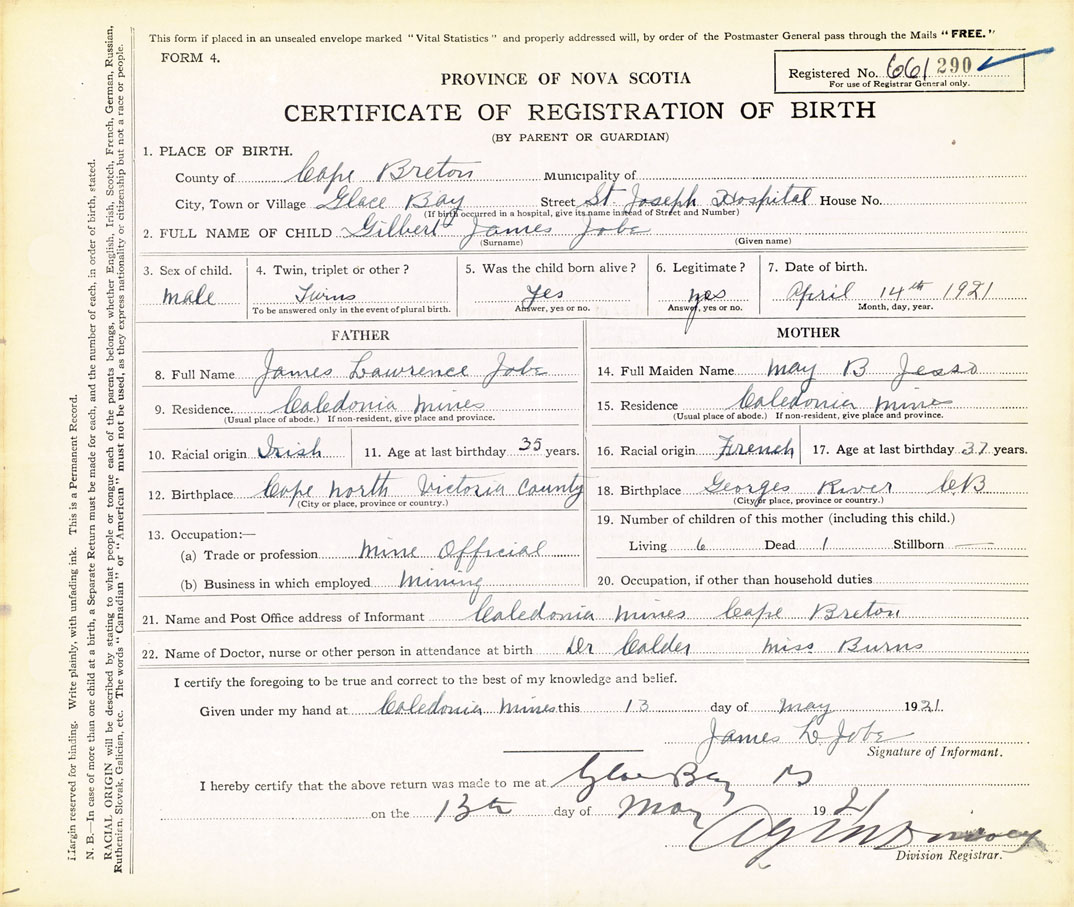 This form if placed in an unsealed envelope marked "Vital Statistics" and properly addressed will, by order of the Postmaster General pass through the Mails "FREE."
FORM 4.
Registered No. 661 290
For use of Registrar General only.
PROVINCE OF NOVA SCOTIA
CERTIFICATE OF REGISTRATION OF BIRTH
(BY PARENT OR GUARDIAN)
1. PLACE OF BIRTH.
County of Cape Breton Municipality of
City, Town or Village Glace Bay Street St. Joseph Hospital House No.
(If birth occurred in a hospital, give its name instead of Street and Number)
2. FULL NAME OF CHILD Gilbert James Jobe
(Surname) (Given name)
3. Sex of child. 4. Twin, triplet or other? 5. Was the child born alive? 6. Legitimate? 7. Date of birth.
male Twins Yes yes April 14th 1921
To be answered only in the event of plural birth. Answer, yes or no. Answer, yes or no. Month, day, year.
FATHER
8. Full Name James Lawrence Jobe
9. Residence. Caledonia Mines
(Usual place of abode.) If non-resident, give place and province.
10. Racial origin Irish 11. Age at last birthday 35 years.
12. Birthplace Cape North Victoria County
(City or place, province or country.)
13. Occupation:—
(a) Trade or profession Mine Official
(b) Business in which employed Mining
MOTHER
14. Full Maiden Name May B Jesso
15. Residence Caledonia Mines
(Usual place of abode.) If non-resident, give place and province.
16. Racial origin French 17. Age at last birthday 37 years.
18. Birthplace Georges River CB
(City or place, province or country.)
19. Number of children of this mother (including this child.)
Living 6 Dead 1 Stillborn —
20. Occupation, if other than household duties
21. Name and Post Office address of Informant Caledonia Mines Cape Breton
22. Name of Doctor, nurse or other person in attendance at birth Dr Calder Miss Burns
I certify the foregoing to be true and correct to the best of my knowledge and belief.
Given under my hand at Caledonia Mines this 13 day of May 1921.
James L Jobe
Signature of Informant.
I hereby certify that the above return was made to me at Glace Bay
on the 13th day of May 1921
Division Registrar.
Margin reserved for binding. Write plainly, with unfading ink. This is a Permanent Record.
N. B.—In case of more than one child at a birth, a Separate Return must be made for each, and the number of each, in order of birth, stated.
RACIAL ORIGIN will be described by stating to what people or tongue each of the parents belongs, whether English, Irish, Scotch, French, German, Russian,
Ruthenian, Slovak, Galician, etc. The words "Canadian" or "American" must not be used, as they express nationality or citizenship but not a race or people.